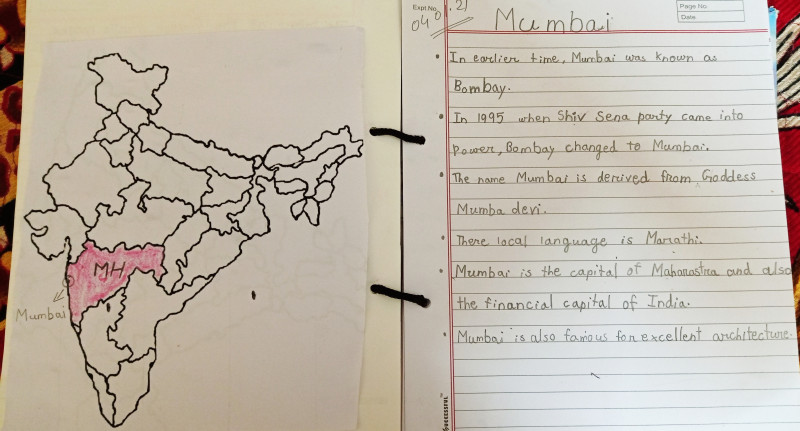 MH
Mumbai
Expt. No.
Page No.
Date
Mumbai
• In earlier time, Mumbai was known as
Bombay.
• In 1995 when Shiv Sena party came into
power, Bombay changed to Mumbai.
• The name Mumbai is derived from Goddess
Mumba devi.
• There local language is Marathi.
• Mumbai is the capital of Maharastra and also
the financial capital of India.
• Mumbai is also famous for excellent architecture.
Successful